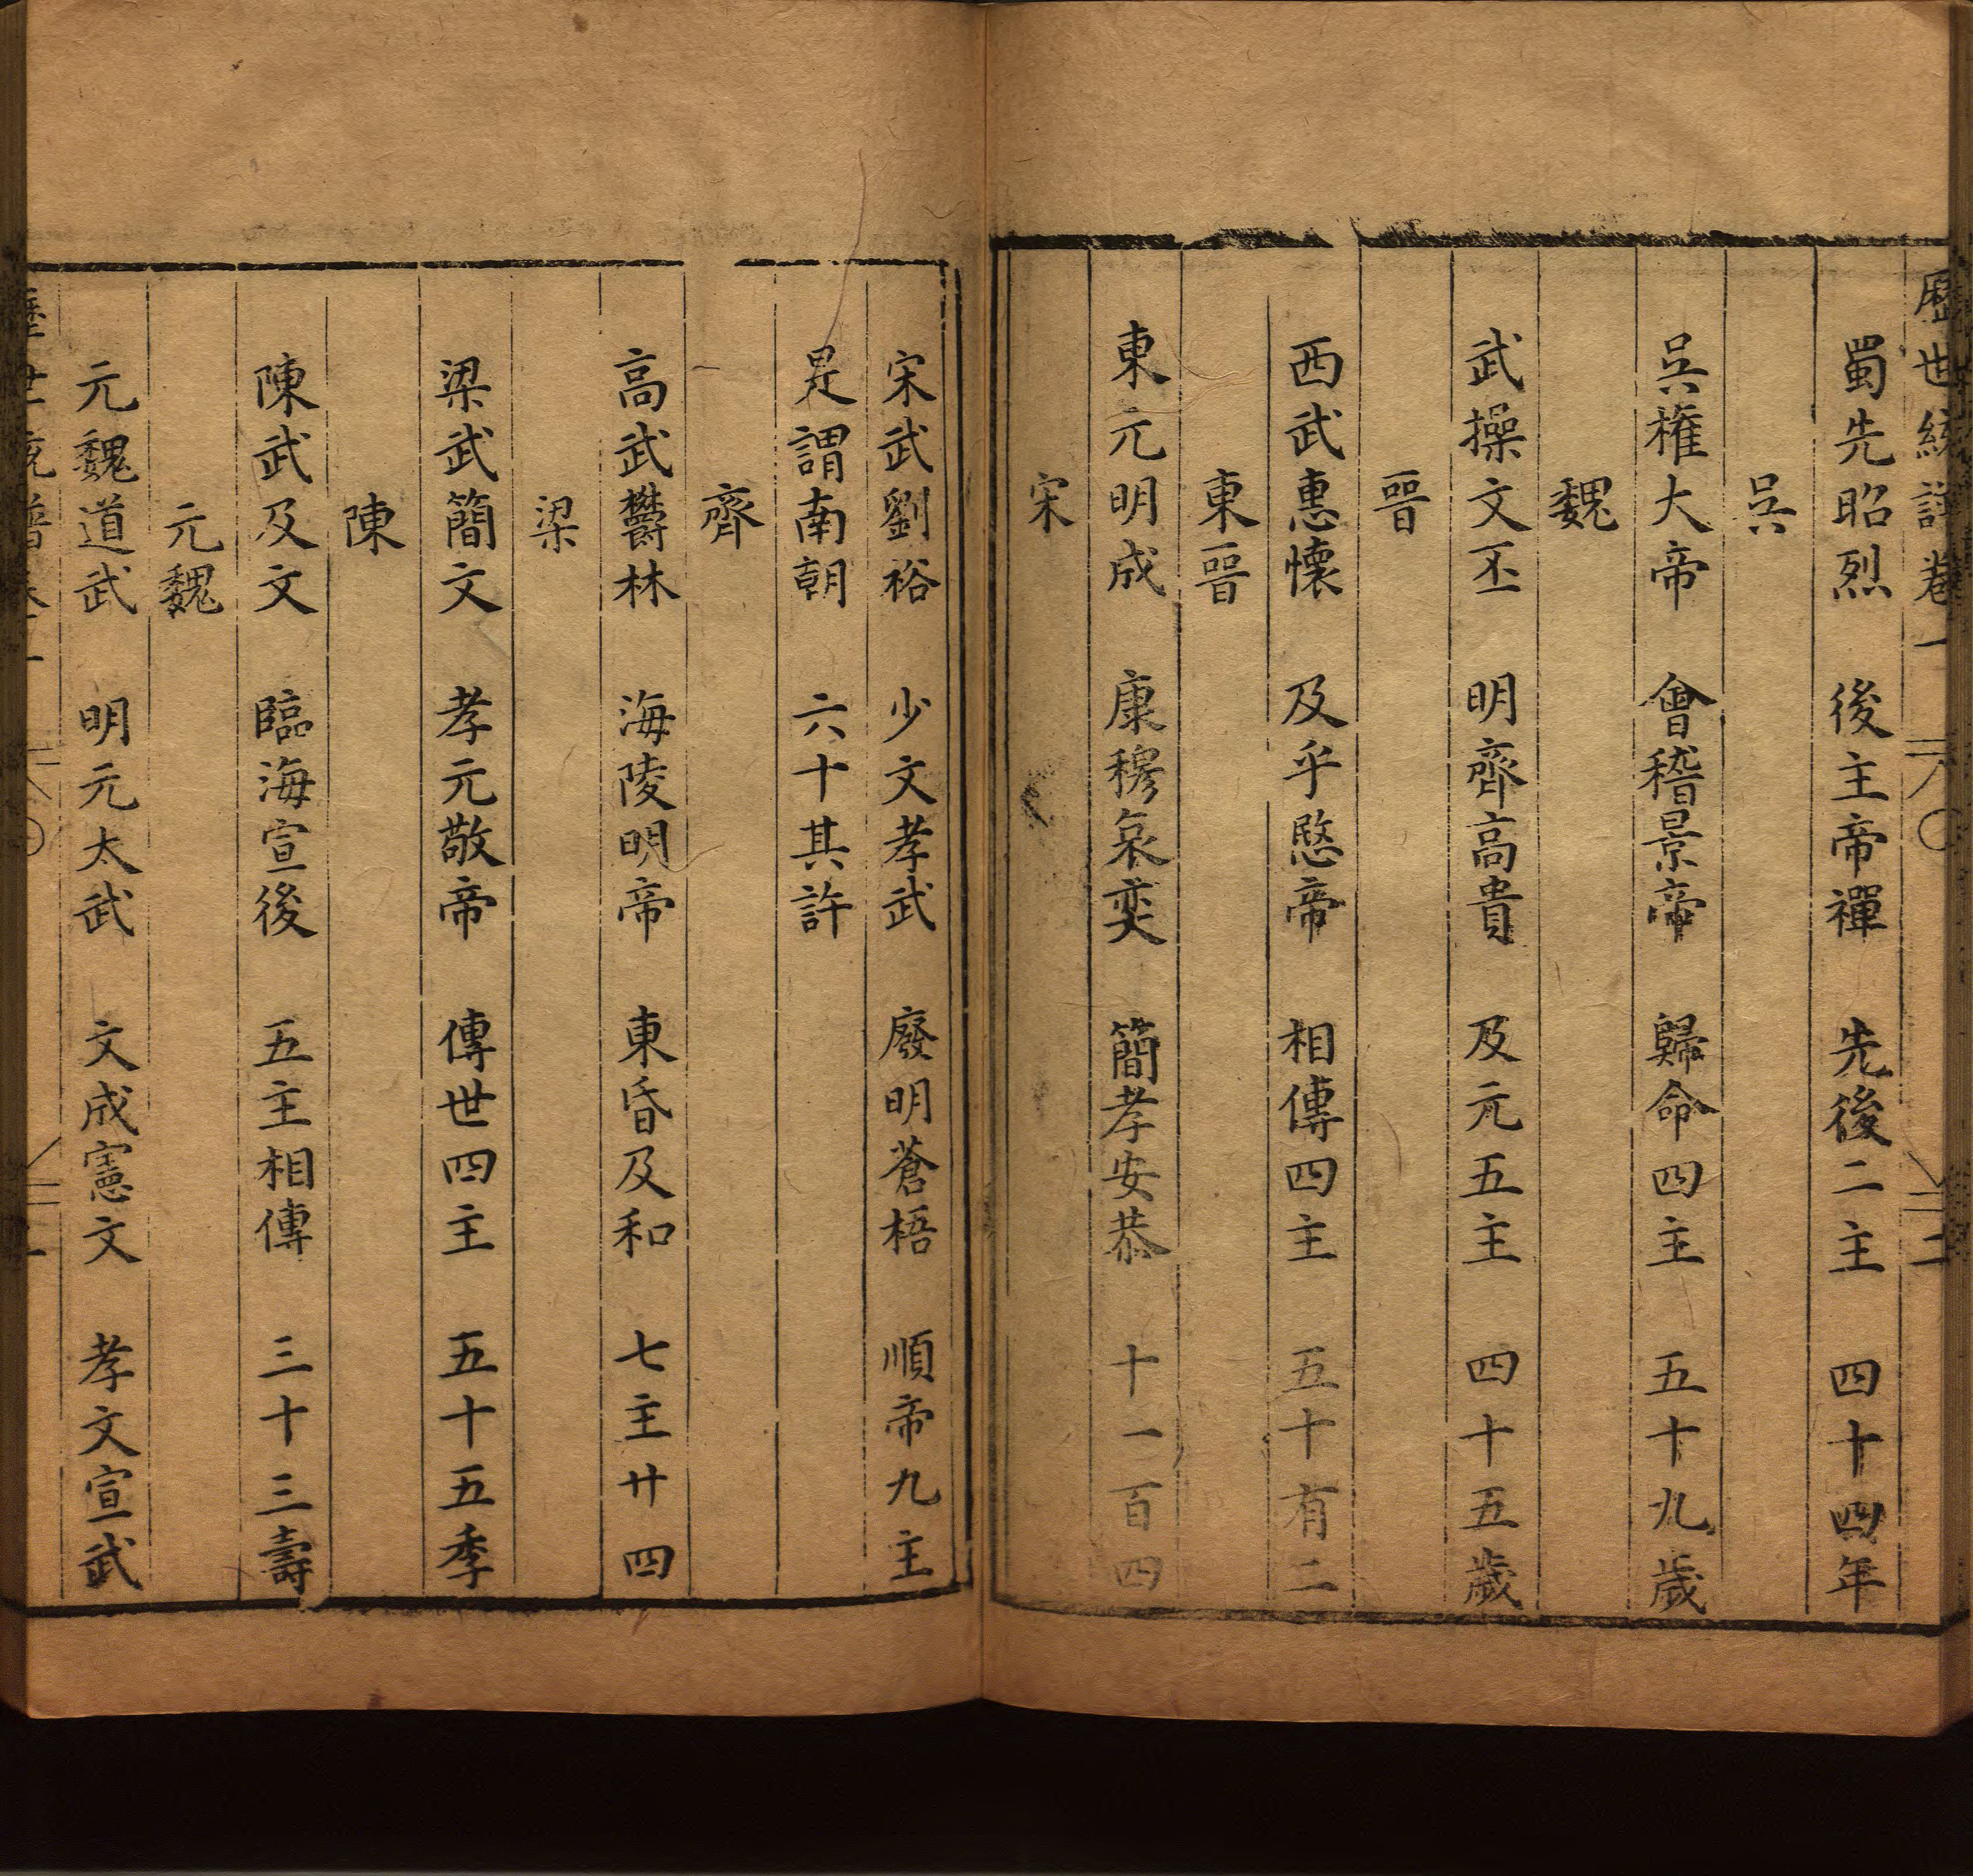 歷世統譜卷一　二
蜀先昭烈　後主帝禪　先後二主　四十四年
吳
吳權大帝　會稽景帝　歸命四主　五十九歲
魏
武操文丕　明齊高貴　及元五主　四十五歲
晉
西武惠懷　及乎愍帝　相傳四主　五十有二
東晉
東元明成　康穆哀奕　簡孝安恭　十一百四
宋
宋武劉裕　少文孝武　廢明蒼梧　順帝九主
是謂南朝　六十其許
齊
高武欝林　海陵明帝　東昏及和　七主廿四
梁
梁武簡文　孝元敬帝　傳世四主　五十五季
陳
陳武及文　臨海宣後　五主相傳　三十三壽
元魏
元魏道武　明元太武　文成憲文　孝文宣武